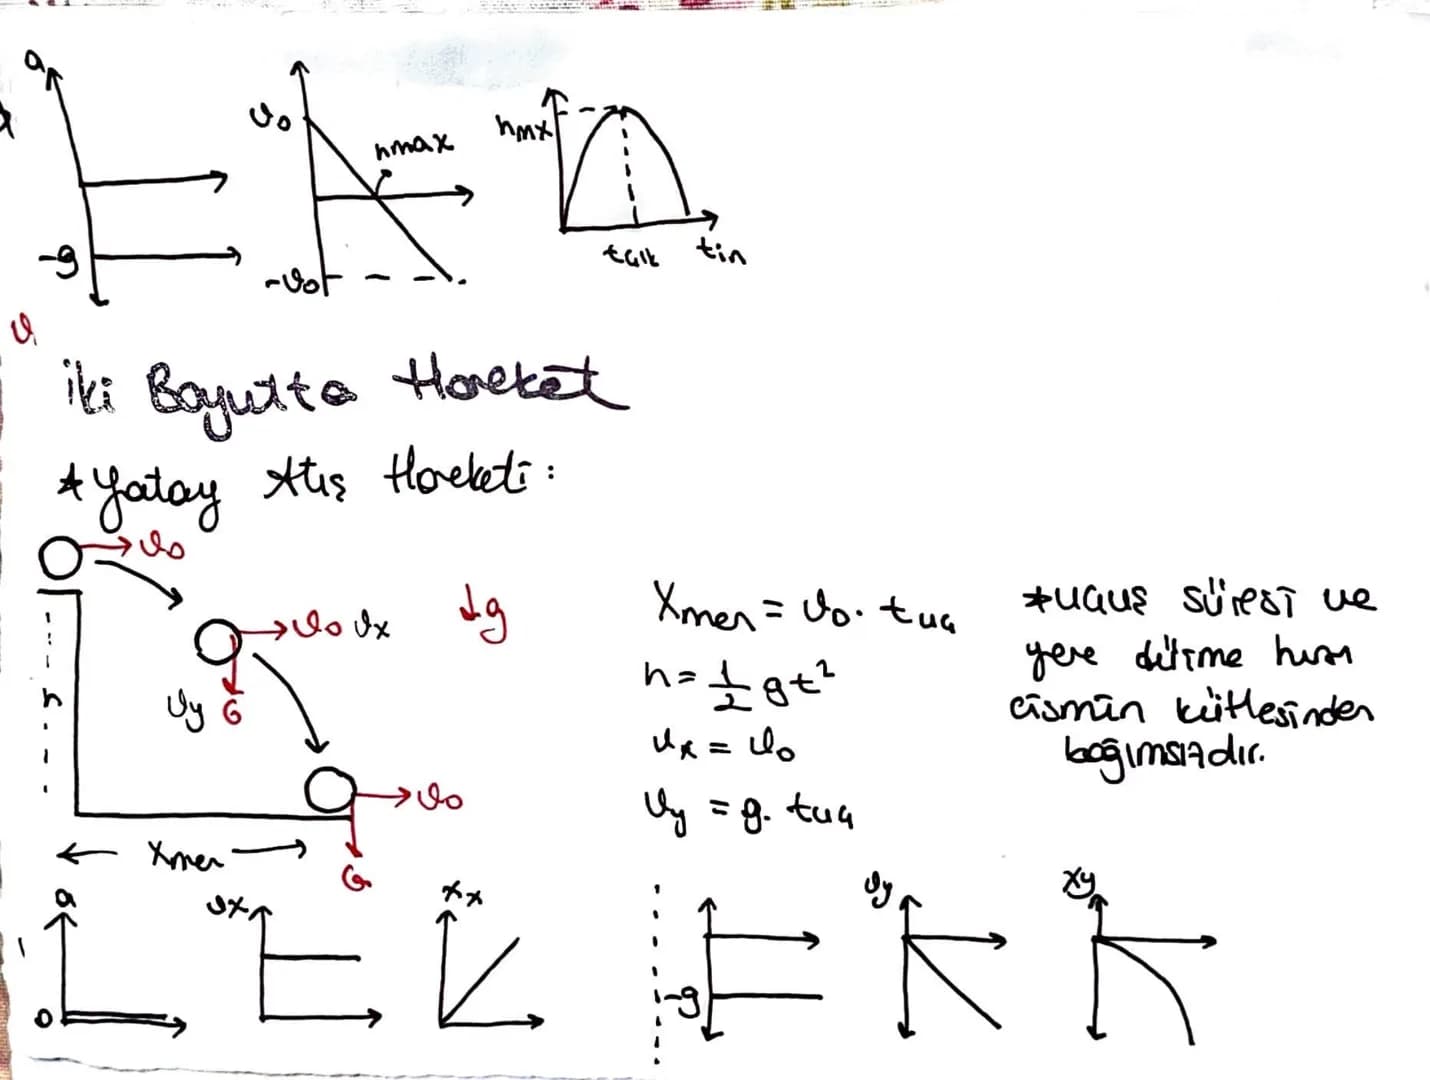 a
-g
v₀
hmax
-v₀
hmx
tçık
tin
İki Boyutta Hareket
* Yatay Atış Hareketi:
v₀
v₀ vx
↓g
vy G
h
v₀
← Xmen →
G
Xmen = v₀. tuç
h = 1/2 gt²
vx = v₀
vy = g. tuç
*uçuş süresi ve
yere düşme hızı
cismin kütlesinden
bağımsızdır.
a
0
vx
xx
-g
vy
xy